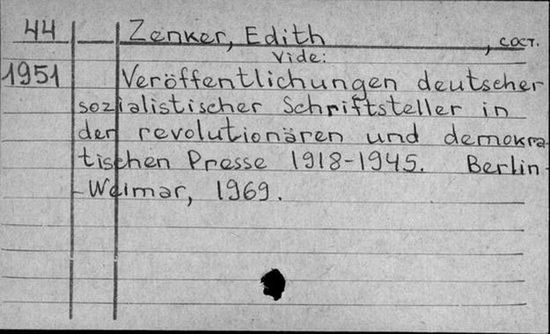 44 Zenker, Edith , сост.
Vide:
1951 Veröffentlichungen deutscher
sozialistischer Schriftsteller in
der revolutionären und demokra-
tischen Presse 1918-1945. Berlin-
-Weimar, 1969.